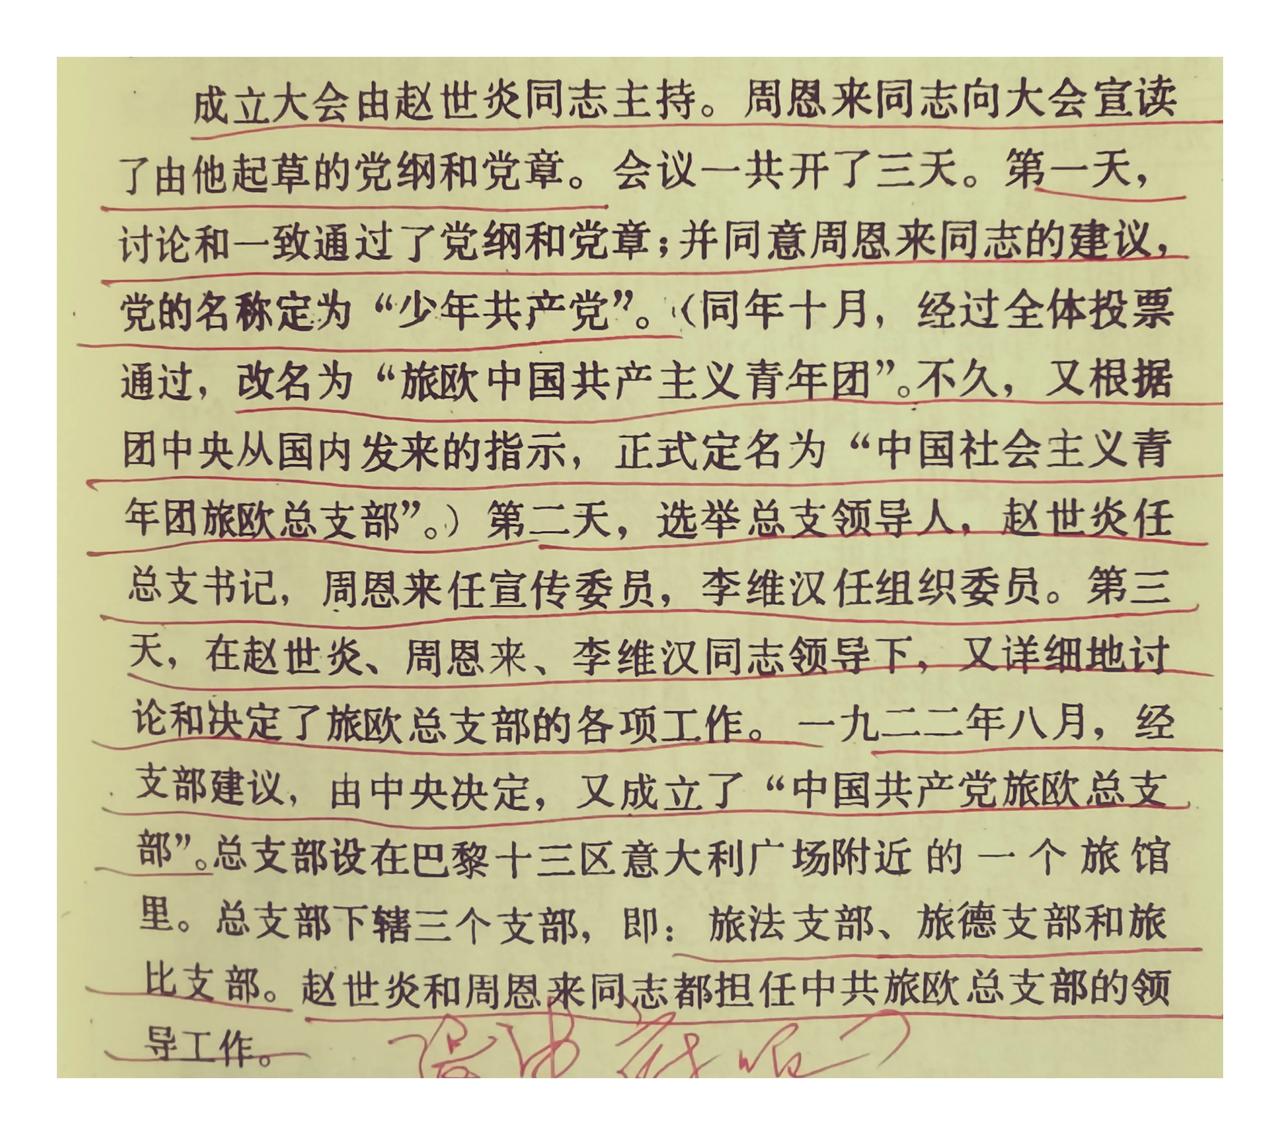 成立大会由赵世炎同志主持。周恩来同志向大会宣读
了由他起草的党纲和党章。会议一共开了三天。第一天，
讨论和一致通过了党纲和党章；并同意周恩来同志的建议，
党的名称定为“少年共产党”。（同年十月，经过全体投票
通过，改名为“旅欧中国共产主义青年团”。不久，又根据
团中央从国内发来的指示，正式定名为“中国社会主义青
年团旅欧总支部”。）第二天，选举总支领导人，赵世炎任
总支书记，周恩来任宣传委员，李维汉任组织委员。第三
天，在赵世炎、周恩来、李维汉同志领导下，又详细地讨
论和决定了旅欧总支部的各项工作。一九二二年八月，经
支部建议，由中央决定，又成立了“中国共产党旅欧总支
部”。总支部设在巴黎十三区意大利广场附近的一个旅馆
里。总支部下辖三个支部，即：旅法支部、旅德支部和旅
比支部。赵世炎和周恩来同志都担任中共旅欧总支部的领
导工作。